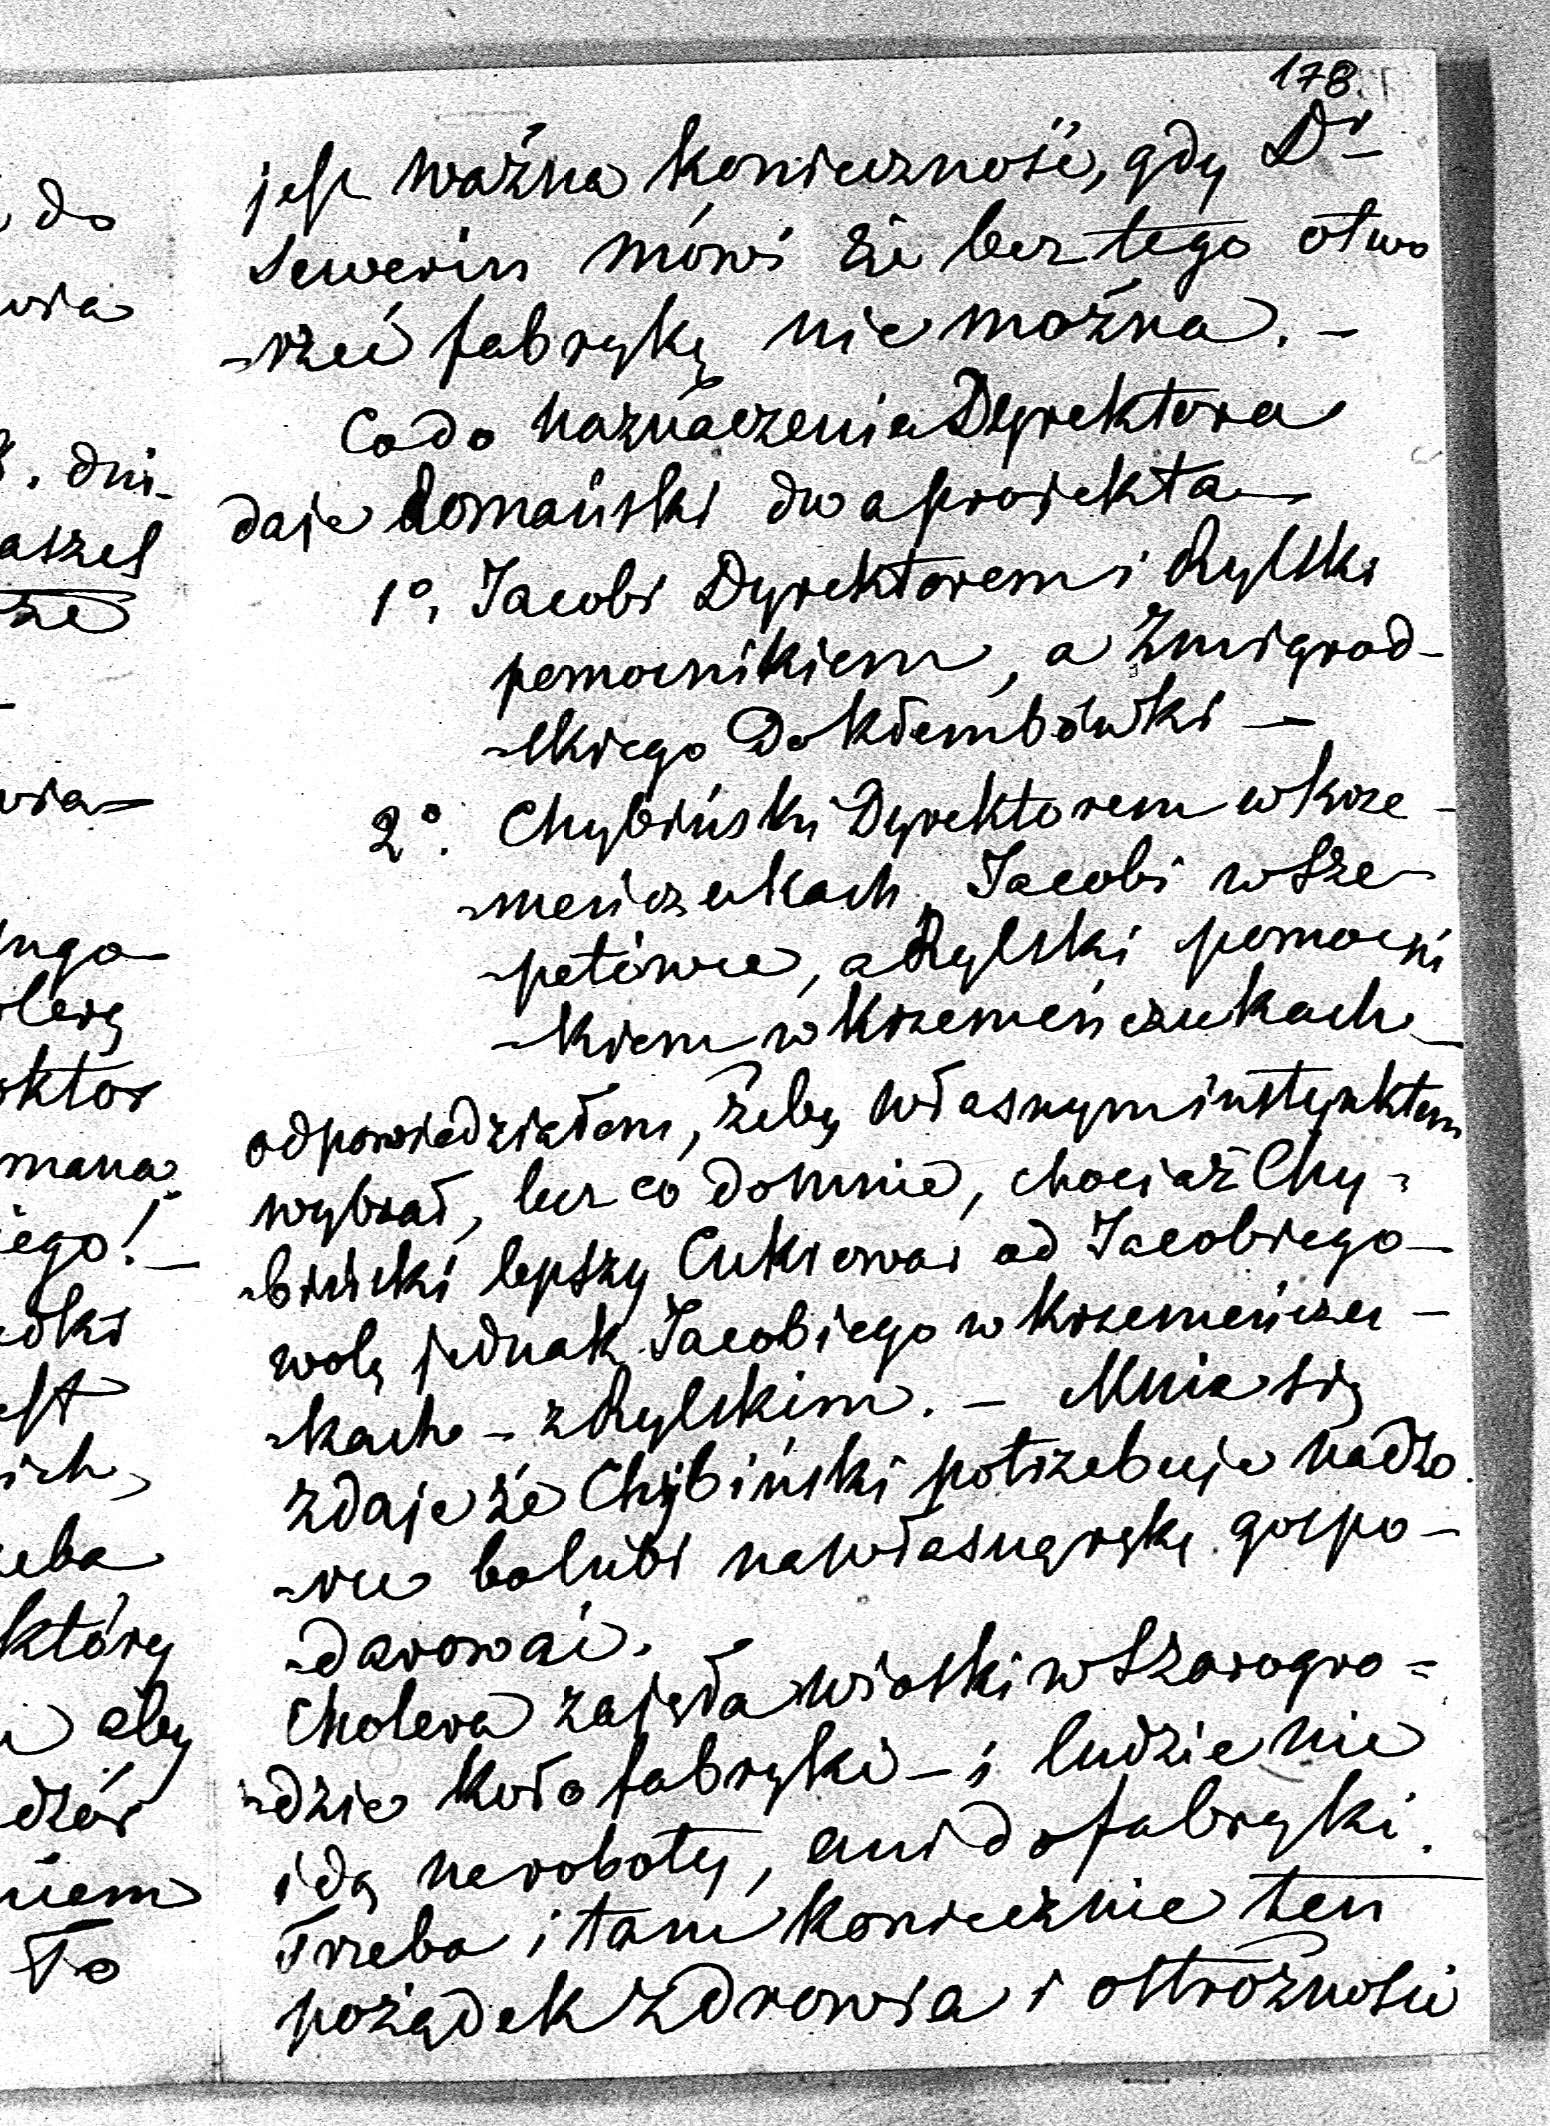 178.
jest ważna konieczność, gdy Dr
Sewerin mówi że bez tego otwo
-rzeć fabrykę nie można. -
Co do naznaczenia Dyrektora
daje Romański dwa projekta -
1°, Jacobi Dyrektorem i Rylski
pomocnikiem, a Żmigrod-
-skiego Do Kłembówki -
2°. Chybiński Dyrektorem w Krze-
-meńczukach Jacobi w Sze-
-petówce, a Rylski pomocni
-kiem w Krzemeńczukach -
odpowiedziałem, żeby własnym instynktem
wybrał, lecz co do mnie, chociaż Chy-
-biński lepszy Cukrowar od Jacobiego -
wolę jednak Jacobiego w Krzemeńczu-
-kach - z Rylskim. - Mnie się
zdaje że Chybiński potrzebuje nadzo
-ru bo lubi na własną rękę gospo-
-darować.
Cholera zajęła wioski w Szarogro=
-dzie koło fabryki - i ludzie nie
idą na roboty, ani do fabryki.
Trzeba i tam koniecznie ten
pożądek zdrowia i ostrożności
do
wia
8. dni-
aszes
że
wia-
unga-
olerę
oktor
mana
iego! -
edki
est
ich,
zeba
który
aby
dzór
niem
To